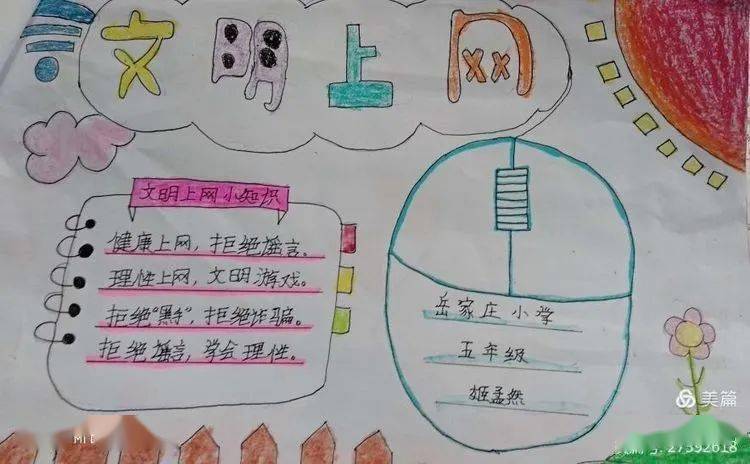 文明上网
文明上网小知识
健康上网，拒绝谣言。
理性上网，文明游戏。
拒绝"黑手"，拒绝诈骗。
拒绝谣言，学会理性。
岳家庄小学
五年级
姬孟然
美篇
27592618